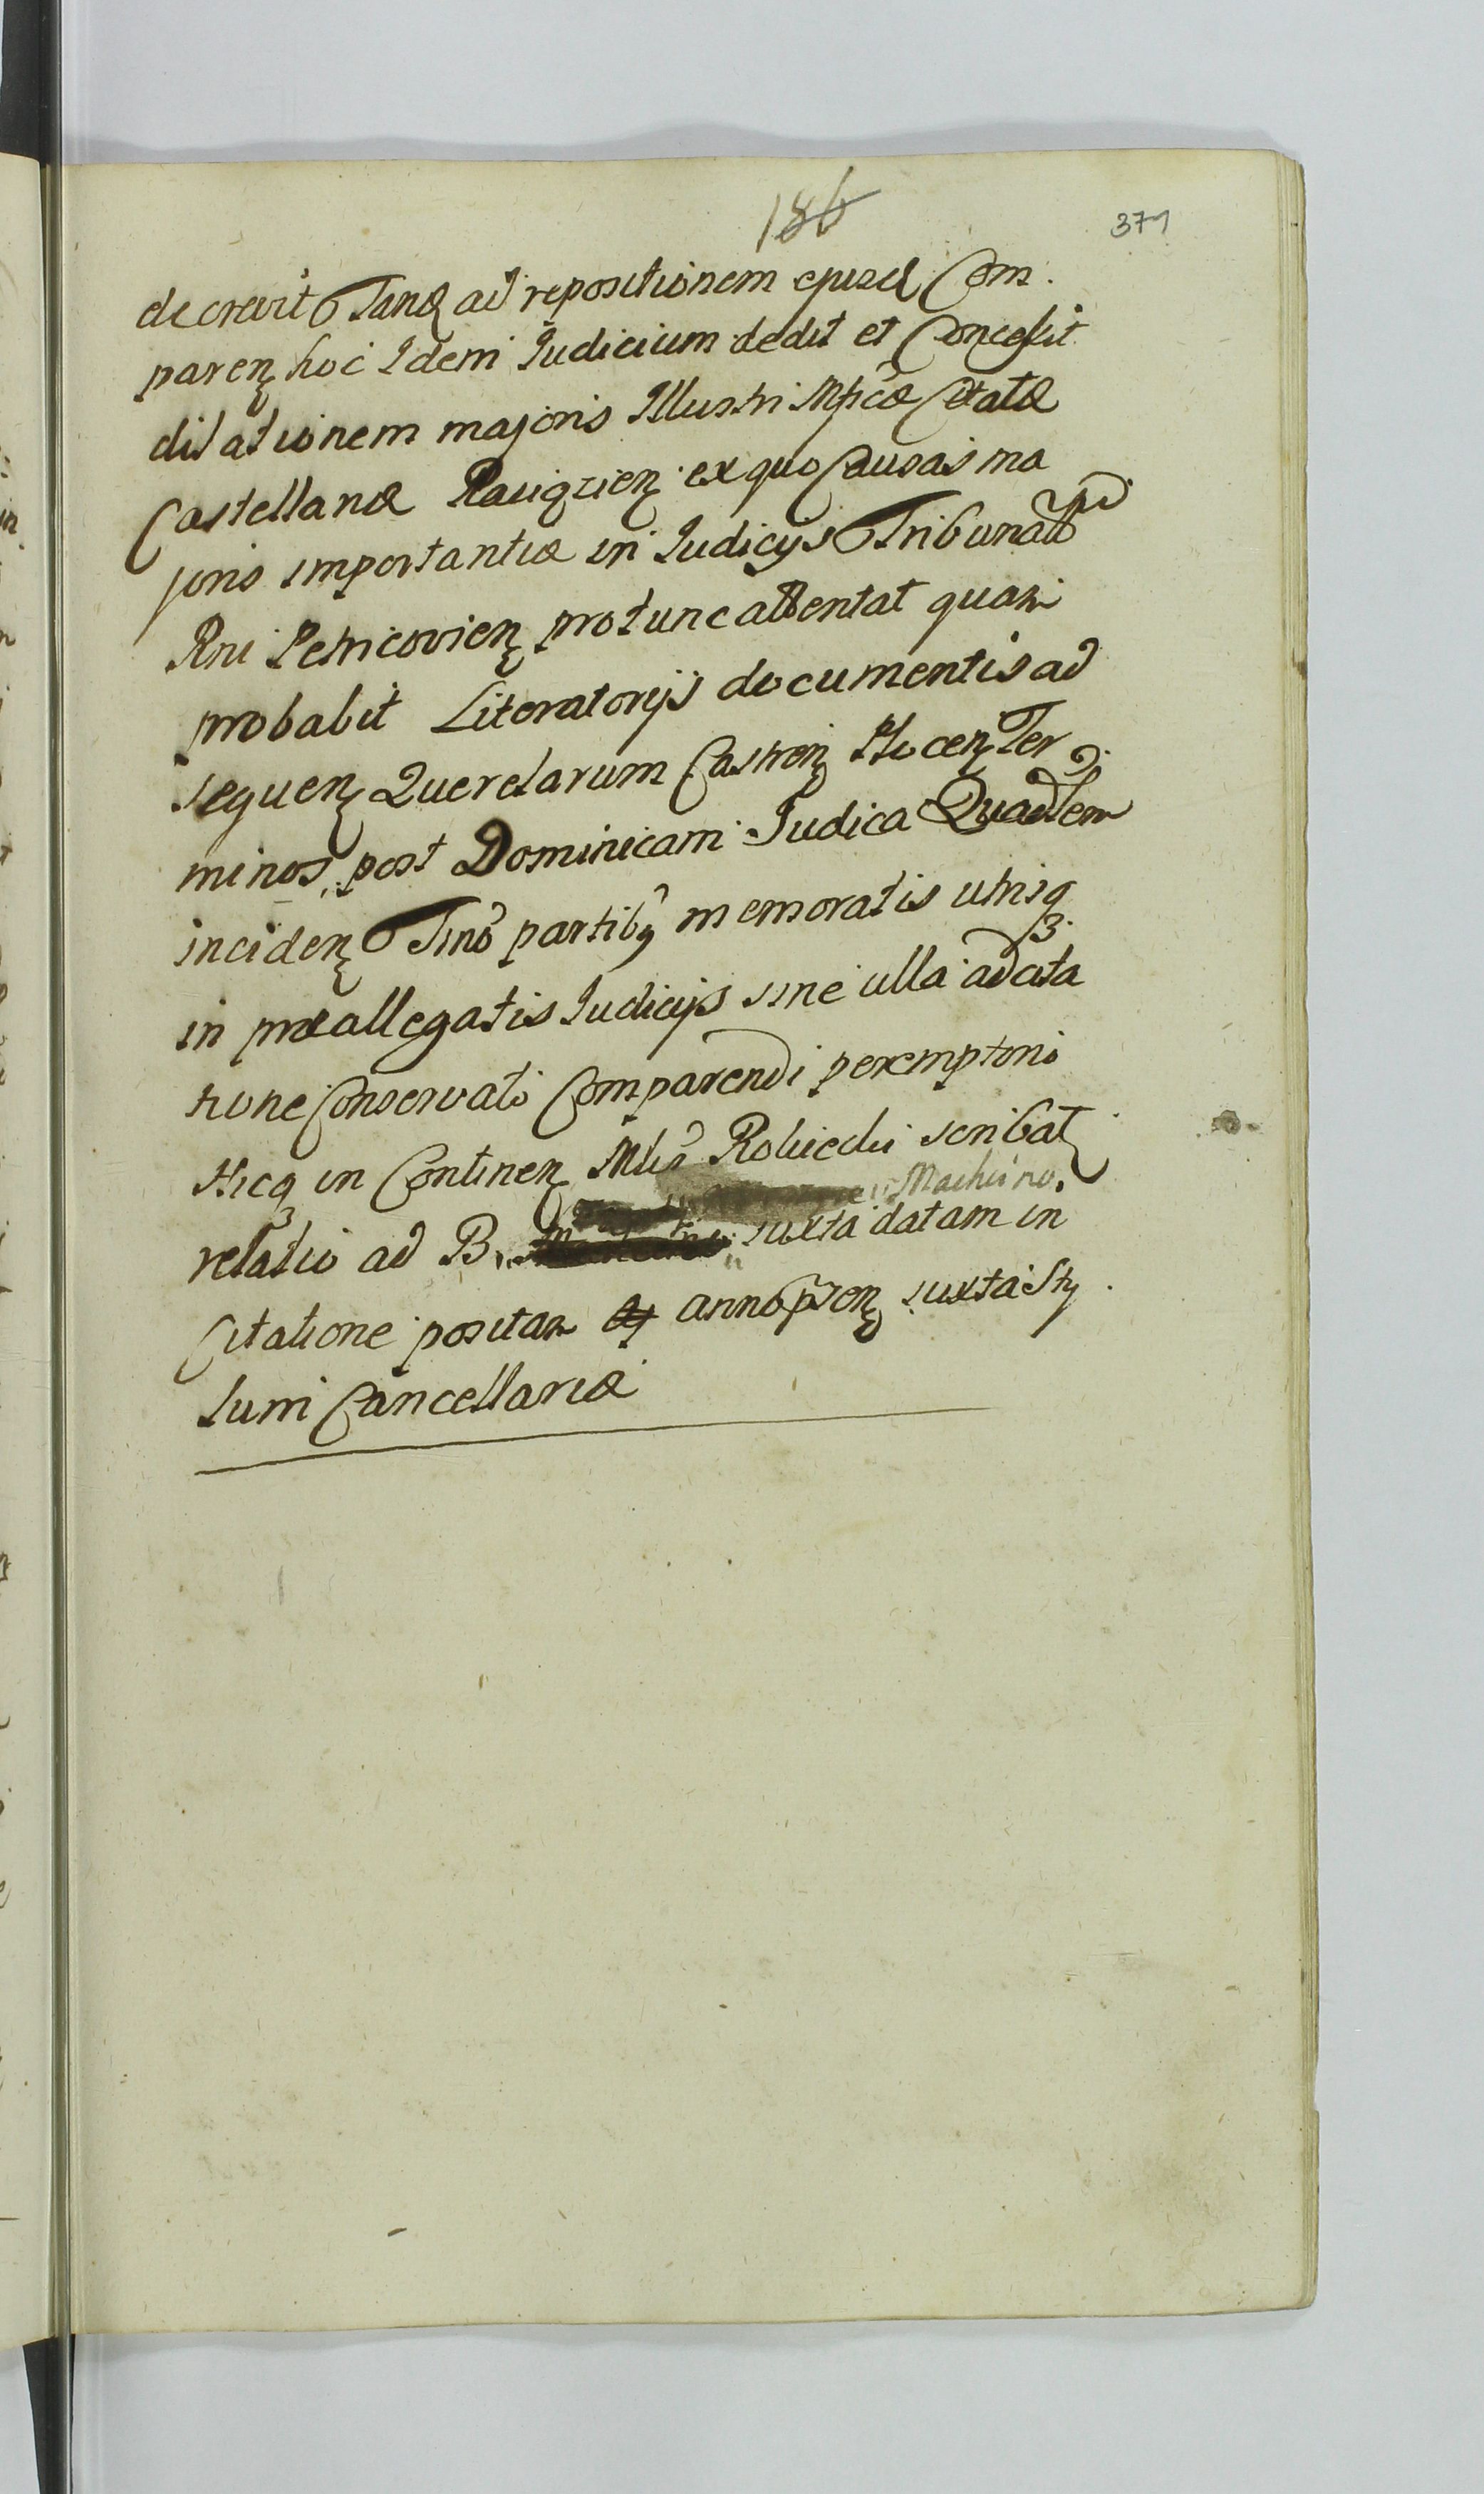 186
371
decrevit Tand ad repositionem ejusd Com.
paren hoc Idem Judicium dedit et Concessit
dilationem majoris Illustri Mficæ Citatæ
Castellanæ Raciązien ex quo Causas ma
joris importantiæ in Judicijs Tribunal
Rni Petricovien protunc attentat quam
probabit Literatorijs documentis ad
sequen Querelarum Castren Plocen Ter
minos, post Dominicam Judica Quadlem
inciden Tmo partibq memoratis utrisq
in præallegatis Judicijs sine ulla adcita
tione Conservato Comparendi peremptorio
Hicq in Continen Mlis scribat
Machino,
relatio ad B. juxta datam in
Citatione positam anno pñen juxta Sty
lum Cancellariæ